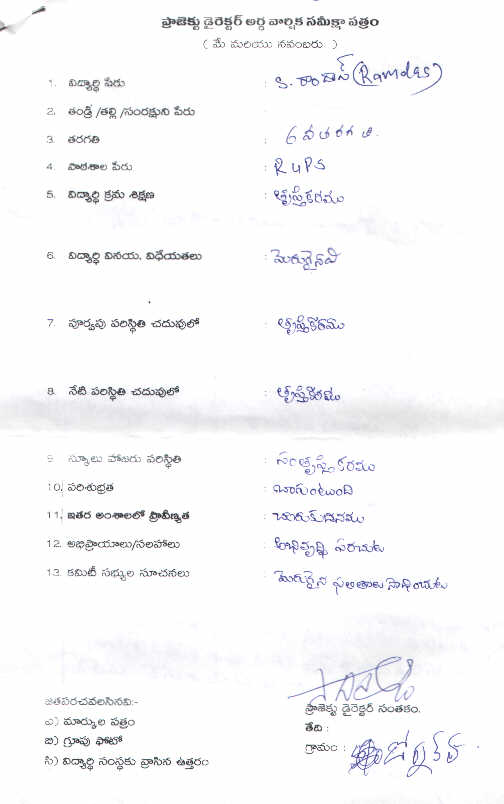 ప్రాజెక్టు డైరెక్టర్ అర్ధ వార్షిక సమీక్షా పత్రం
( మే మరియు నవంబరు: )
1. విద్యార్థి పేరు : S. రాందాస్ (Ramdas)
2. తండ్రి /తల్లి /సంరక్షుని పేరు
3. తరగతి : 6 వ తరగతి.
4. పాఠశాల పేరు : RUPS
5. విద్యార్థి క్రమ శిక్షణ : తృప్తికరము
6. విద్యార్థి వినయ, విధేయతలు : మెరుగైనవి
7. పూర్వపు పరిస్థితి చదువులో : తృప్తికరము
8. నేటి పరిస్థితి చదువులో : తృప్తికరము
9. స్కూలు హాజరు పరిస్థితి : సంతృప్తికరము
10. పరిశుభ్రత : బాగుంటుంది
11. ఇతర అంశాలలో ప్రావీణ్యత : చురుకుదనము
12. అభిప్రాయాలు/సలహాలు : అభివృద్ధి పరచుట
13. కమిటీ సభ్యుల సూచనలు : మెరుగైన ఫలితాలు సాధించుట
జతపరచవలసినవి:-
ఎ) మార్కుల పత్రం
బి) గ్రూపు ఫోటో
సి) విద్యార్థి సంస్థకు వ్రాసిన ఉత్తరం
ప్రాజెక్టు డైరెక్టర్ సంతకం.
తేది :
గ్రామం :